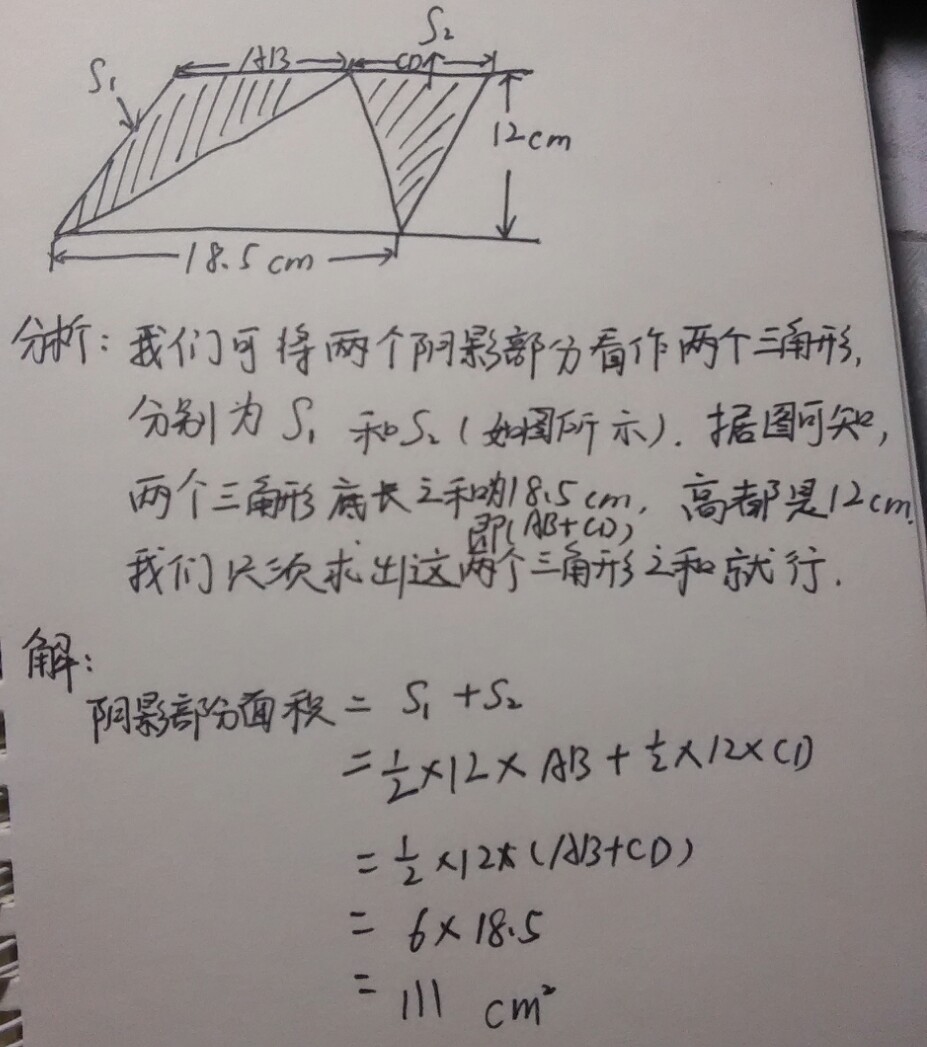 S₂
S₁
AB
CD
12cm
18.5 cm
分析：我们可将两个阴影部分看作两个三角形，
分别为 S₁ 和S₂（如图所示）. 据图可知，
两个三角形底长之和为18.5cm，高都是12cm.
即(AB+CD)
我们只须求出这两个三角形之和就行.
解：
阴影部分面积 = S₁ + S₂
= 1/2 × 12 × AB + 1/2 × 12 × CD
= 1/2 × 12 × (AB+CD)
= 6 × 18.5
= 111 cm²